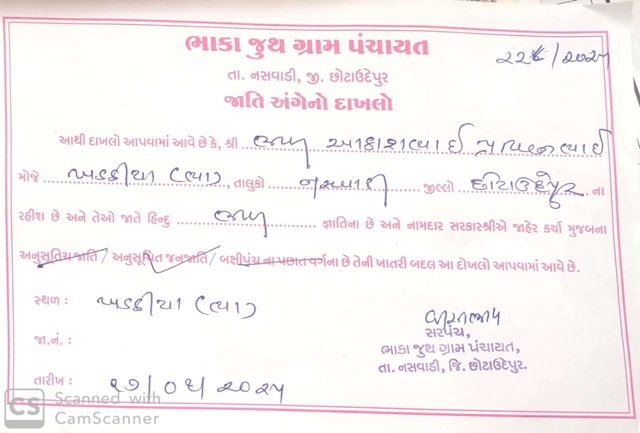 ભાકા જુથ ગ્રામ પંચાયત
તા. નસવાડી, જી. છોટાઉદેપુર
જાતિ અંગેનો દાખલો
આથી દાખલો આપવામાં આવે છે કે, શ્રી આકાશભાઈ
મોજે ખડકીયા (ભા), તાલુકો નસવાડી જીલ્લો છોટાઉદેપુર ના
રહીશ છે અને તેઓ જાતે હિન્દુ જ્ઞાતિના છે અને નામદાર સરકારશ્રીએ જાહેર કર્યા મુજબના
અનુસુચિત જાતિ / અનુસૂચિત જનજાતિ / બક્ષીપંચના પછાત વર્ગના છે તેની ખાતરી બદલ આ દોખલો આપવામાં આવે છે.
સ્થળ : ખડકીયા (ભા)
જા.નં. :
સરપંચ,
ભાકા જુથ ગ્રામ પંચાયત,
તા. નસવાડી, જિ. છોટાઉદેપુર.
તારીખ :
CS Scanned with
CamScanner